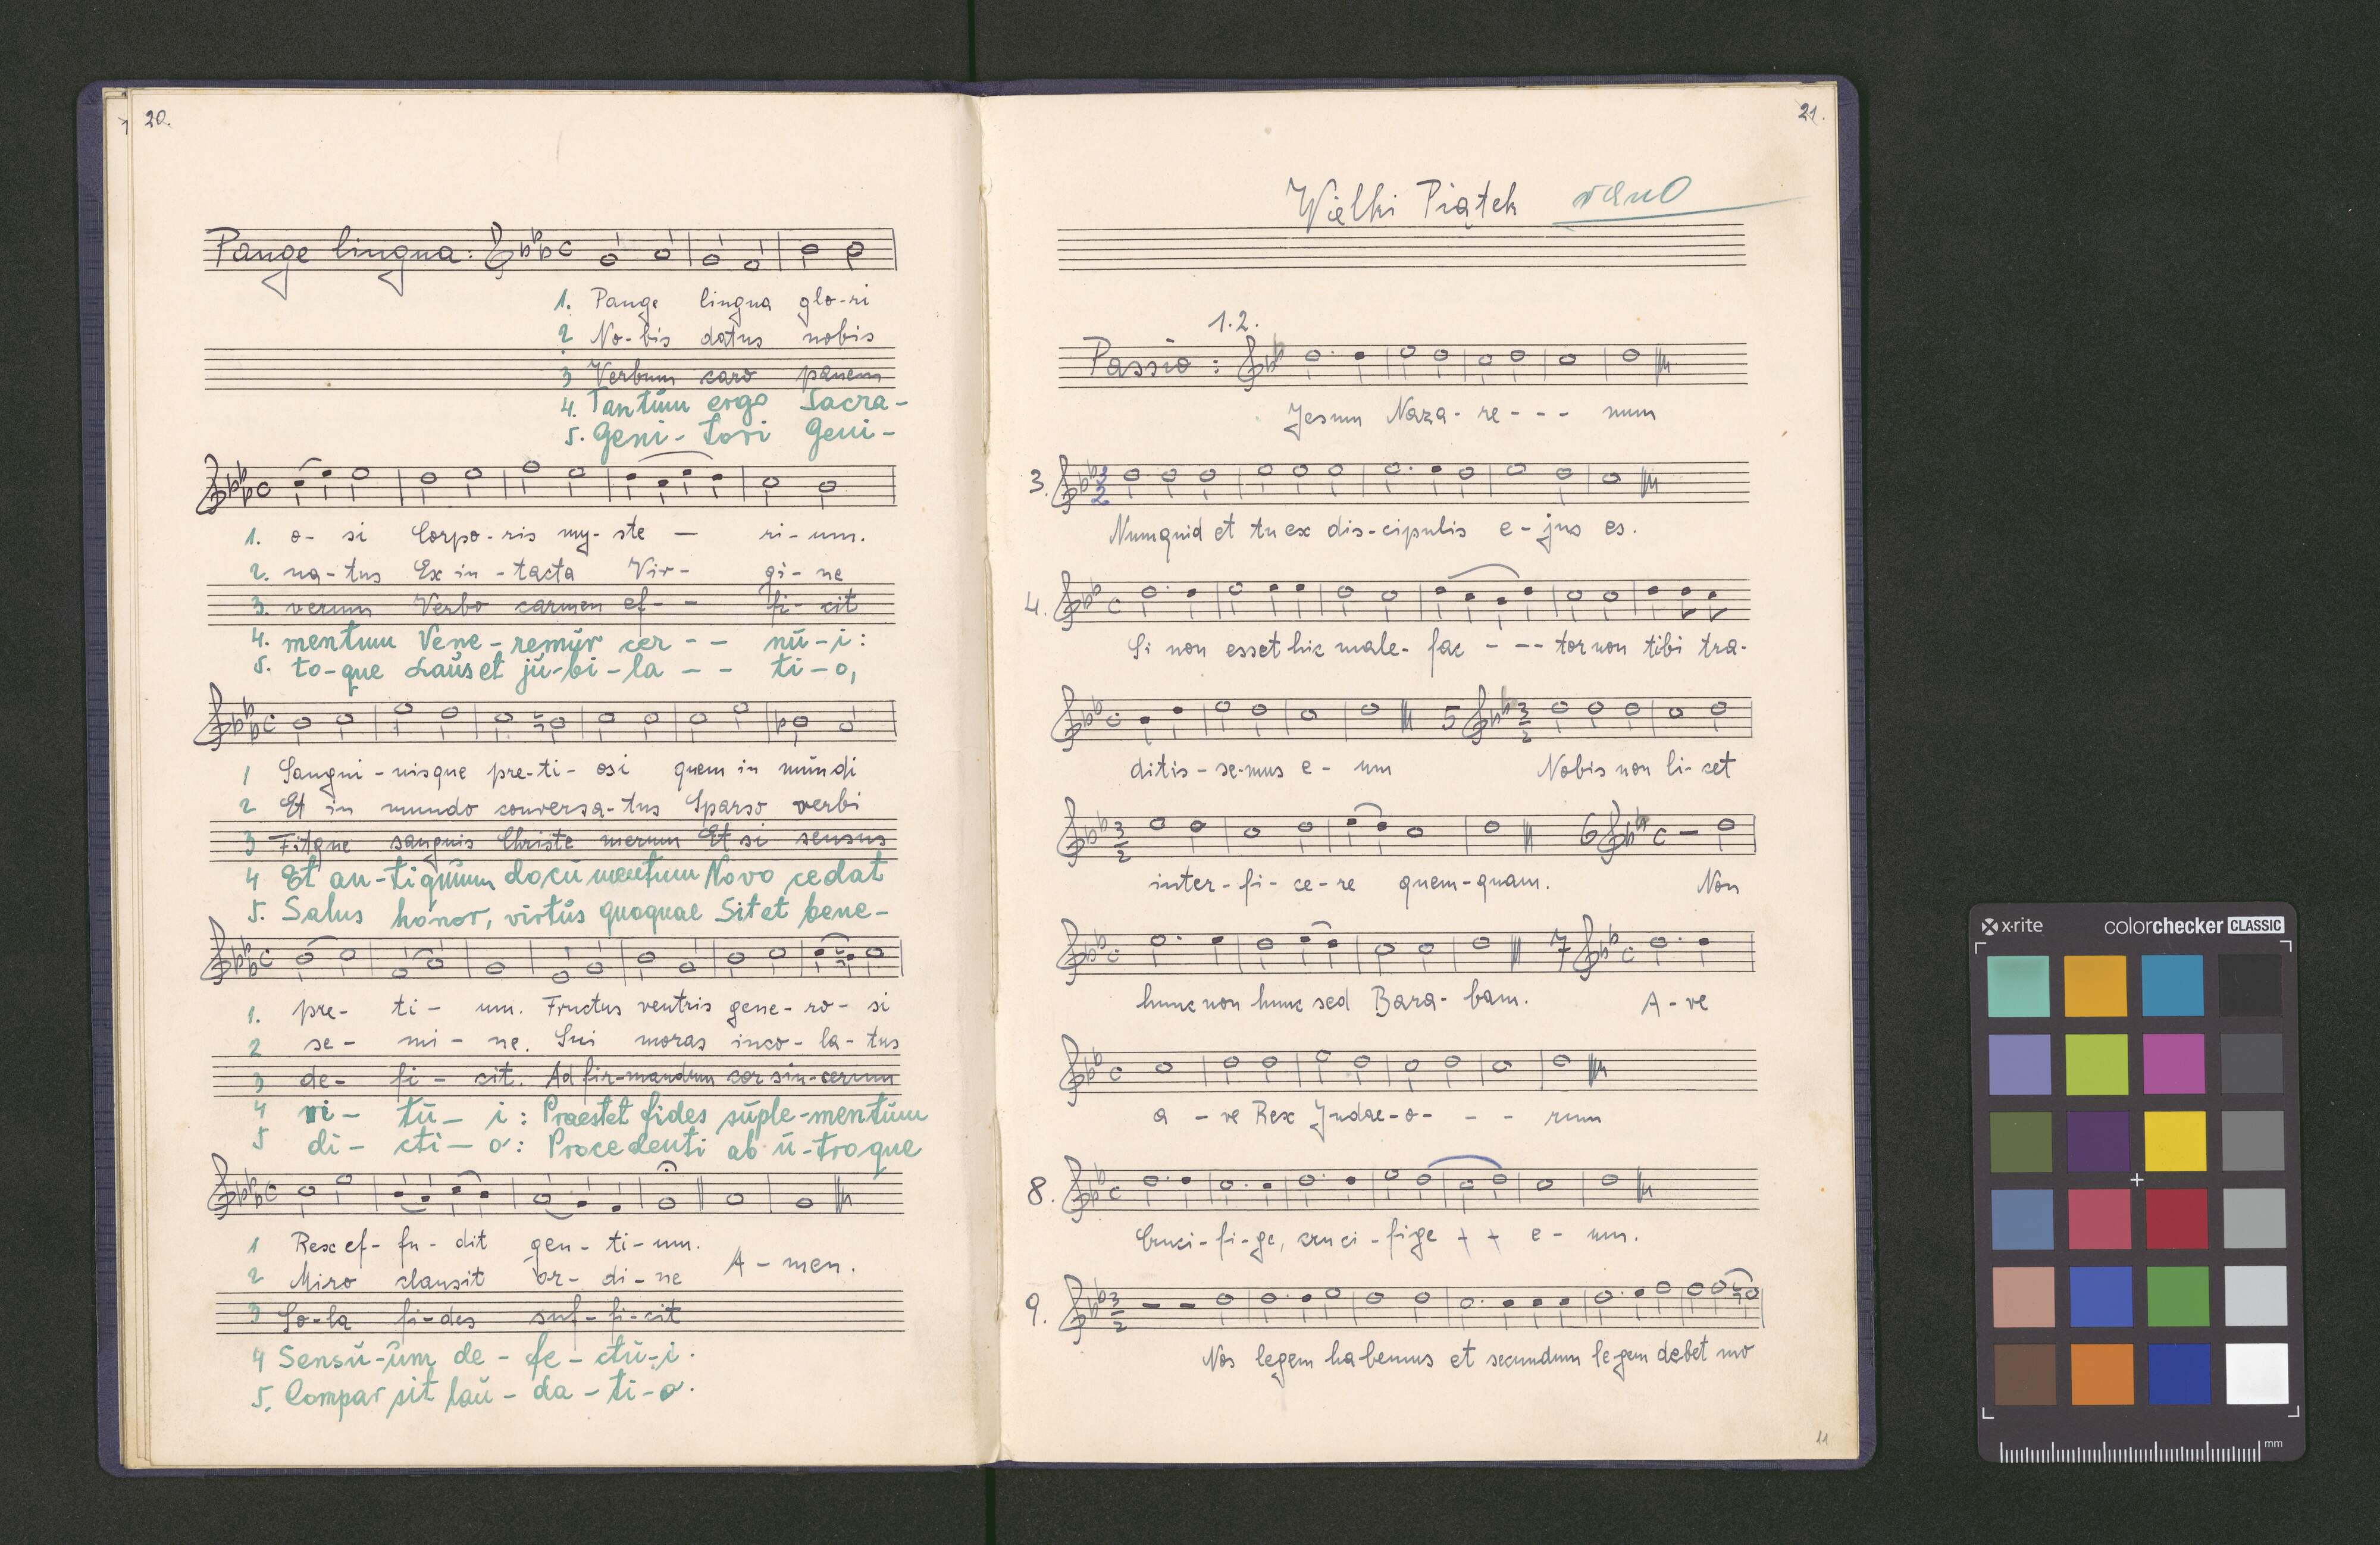 20.
Pange lingua:
1. Pange lingua glo-ri
2 No-bis datus nobis
3 Verbum caro panem
4. Tantŭm ergo Sacra-
5. Geni-tori Geni-
1. o- si Corpo-ris my-ste — ri-um.
2. na-tus Ex in-tacta Vir- gi-ne
3. verum Verbo carmen ef-- fi-cit
4. mentum Vene-remŭr cer -- nŭ-i:
5. to-que Laŭs et jŭ-bi-la -- ti-o,
1 Sangui-nisque pre-ti-osi quem in mŭndi
2 Et in mundo conversa-tus Sparso verbi
3 Fitque sanguis Christe merum Et si sensus
4 Et an-tiqŭum docŭmentum Novo cedat
5. Salus honor, virtŭs quoquae Sit et bene-
1. pre- ti- um. Fructus ventris gene-ro-si
2 se- mi- ne. Sui moras inco-la-tus
3 de- fi- cit. Ad fir-mandum cor sin-cerum
4 ri- tŭ- i: Praestet fides sŭple-mentŭm
5 di- cti- o: Procedenti ab ŭ-troque
1 Rex ef-fu-dit gen-ti-um.
2 Miro clausit or-di-ne A-men.
3 So-la fi-des suf-fi-cit
4 Sensŭ-ŭm de-fe-ctŭ-i.
5. Compar sit laŭ-da-ti-o.
21.
Wielki Piątek rano
1.2.
Passio:
Jesum Naza-re--- num
3. 3 2
Numquid et tu ex dis-cipulis e-jus es.
4.
Si non esset hic male-fac --- tor non tibi tra-
5 3 2
ditis-se-mus e-um Nobis non li-cet
3 2 6
inter-fi-ce-re quem-quam. Non
7
hunc non hunc sed Bara-bam. A-ve
a-ve Rex Judae-o- -- rum
8.
Cruci-fi-ge, cruci-fige + + e-um.
9. 3 2
Nos legem habemus et secundum legem debet mo
11
x-rite colorchecker CLASSIC
mm